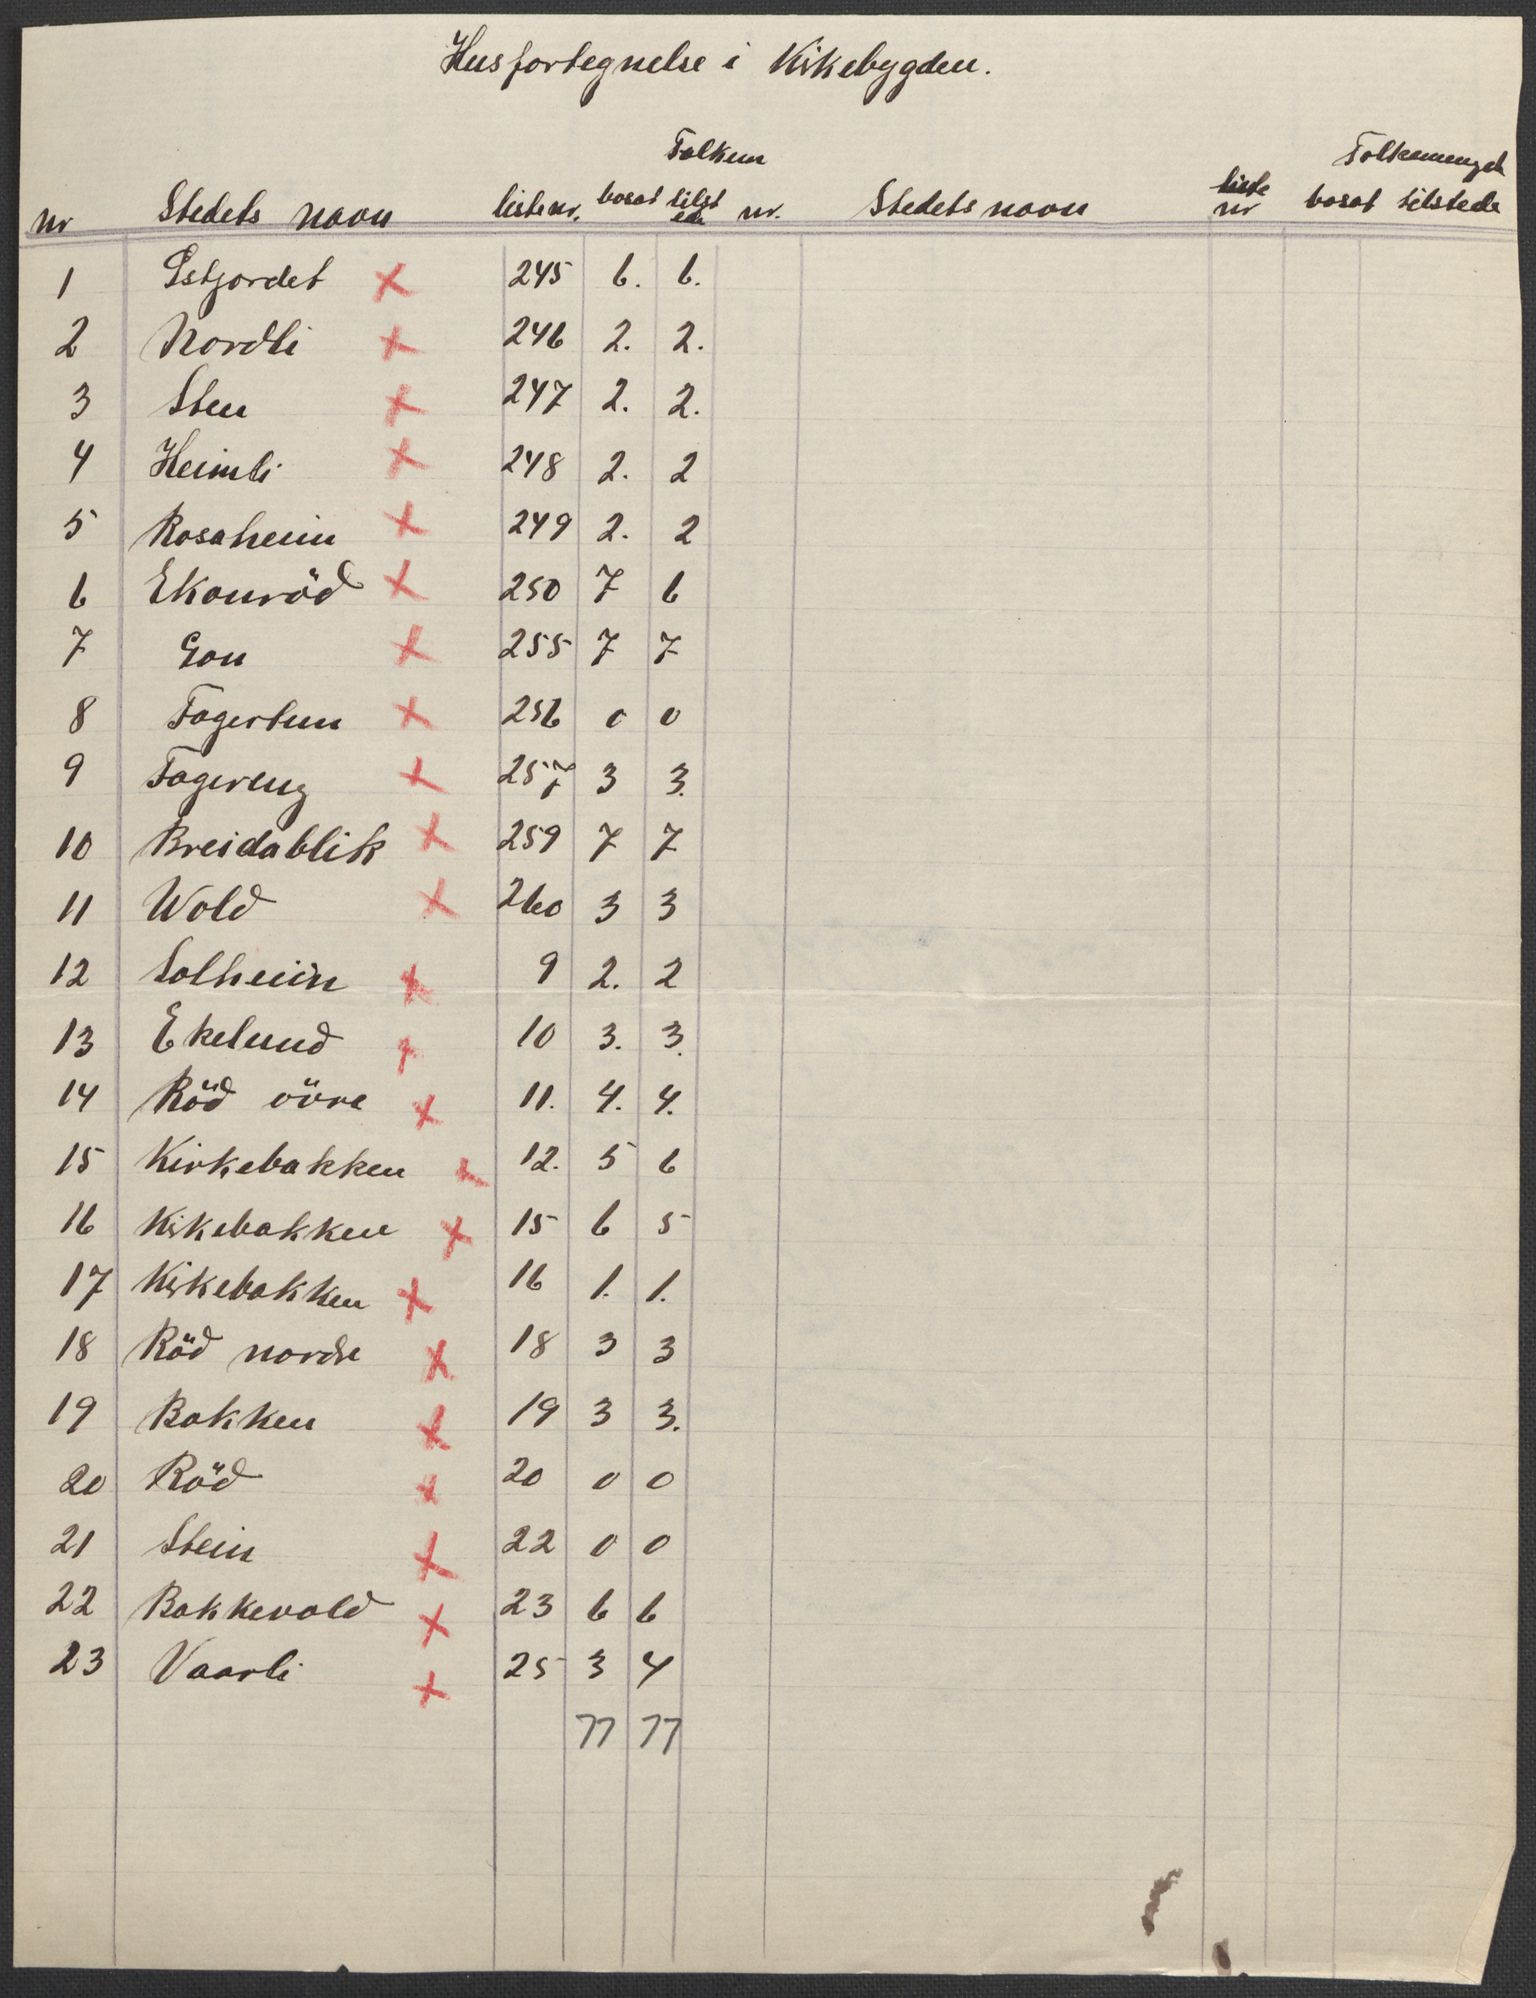 Husfortegnelse i Kirkebygden.
Folkem Folkemengde
nr Stedets navn listenr. bosat tilstede nr. Stedets navn liste nr bosat tilstede
1 Estjordet x 245 6. 6.
2 Nordli x 246 2. 2.
3 Sten x 247 2. 2.
4 Heimli x 248 2. 2
5 Rosaheim x 249 2. 2
6 Ekonröd x 250 7 6
7 Gon x 255 7 7
8 Fagertun x 256 0 0
9 Fagereng x 257 3 3.
10 Breidablik x 259 7 7
11 Wold x 260 3 3
12 Solheim x 9 2. 2
13 Ekelund x 10 3. 3.
14 Röd övre x 11. 4. 4.
15 Kirkebakken x 12. 5 6
16 Kirkebakken x 15 6 5
17 Kirkebakken x 16 1. 1.
18 Röd nordre x 18 3 3
19 Bakken x 19 3 3.
20 Röd x 20 0 0
21 Stein x 22 0 0
22 Bakkevold x 23 6 6
23 Vaarli x 25 3 4
77 77